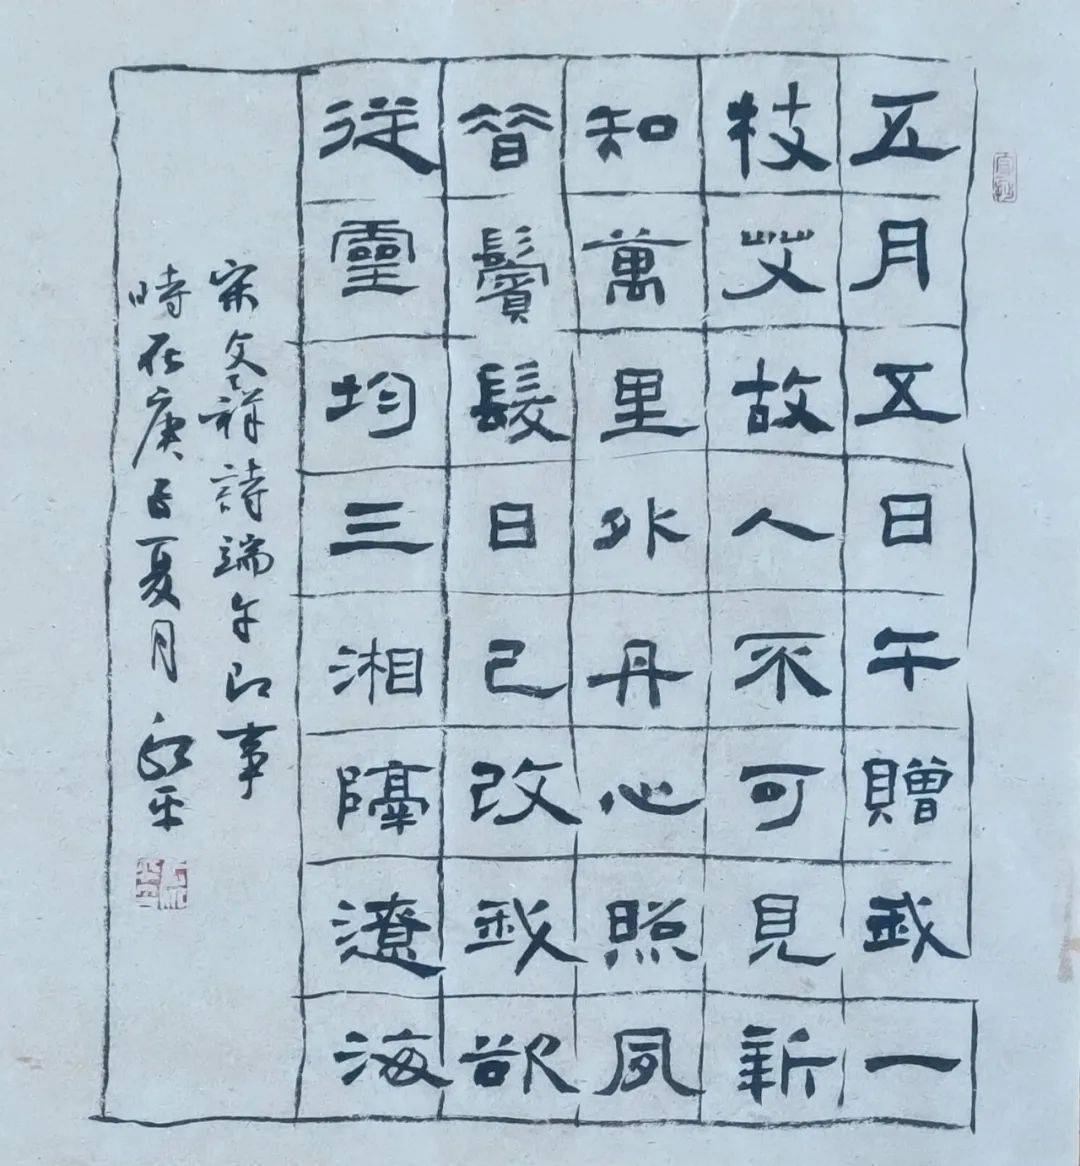 五月五日午贈我一
枝艾故人不可見新
知萬里外丹心照夙
昔鬢髮日已改我欲
從靈均三湘隔遼海
宋文天祥詩端午即事
時在庚子夏月